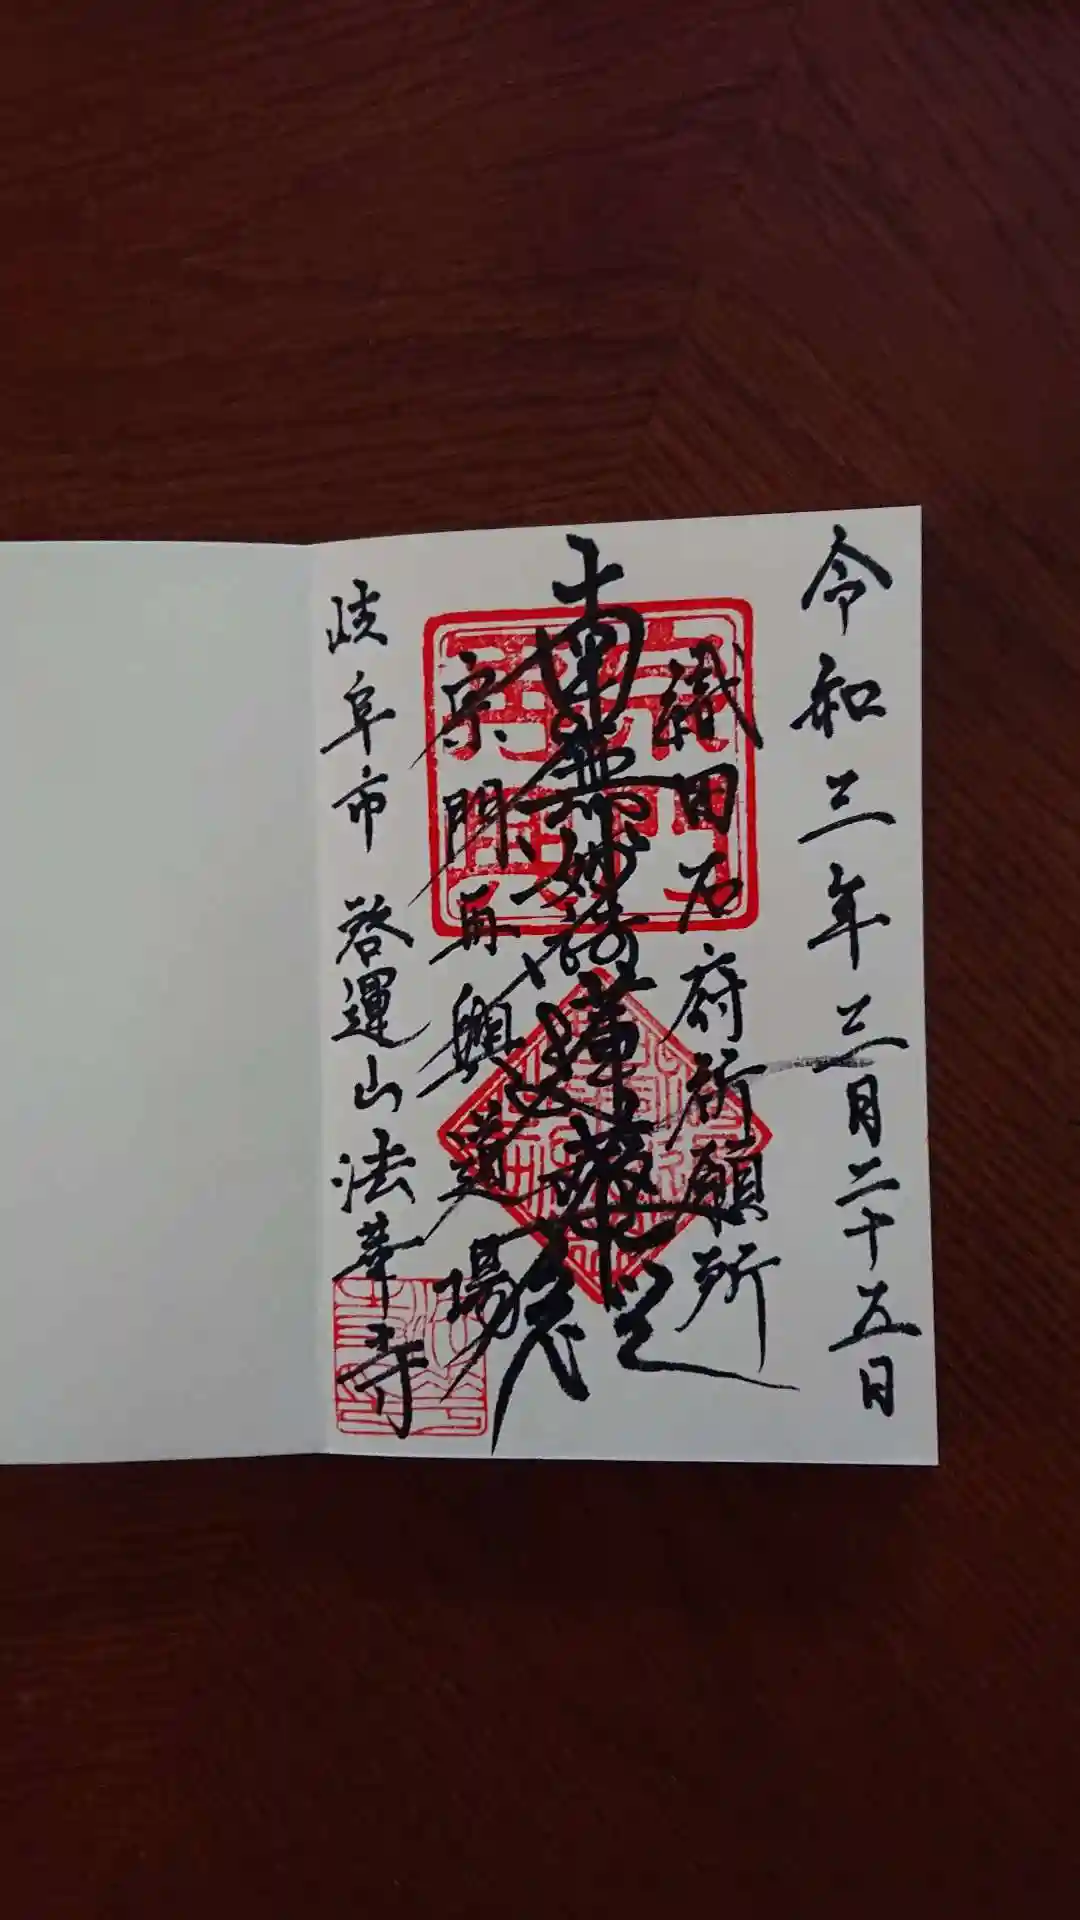 令和三年三月二十五日
織田右府祈願所
南無妙法蓮華経
宗門再興道場
岐阜市 啓運山法華寺